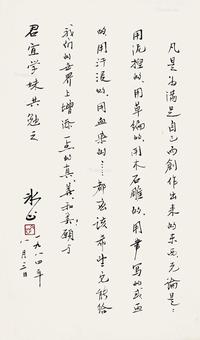 凡是为满足自己而创作出来的东西,无论是:
用泥捏的,用草编的,用木石雕的,用笔写的或画
的用汗浸的,用血染的……都应该希望它能给
我们的世界上增添一点的真、善、和美,愿与
君宜学妹共勉之
冰心
一九八四年
八月三日